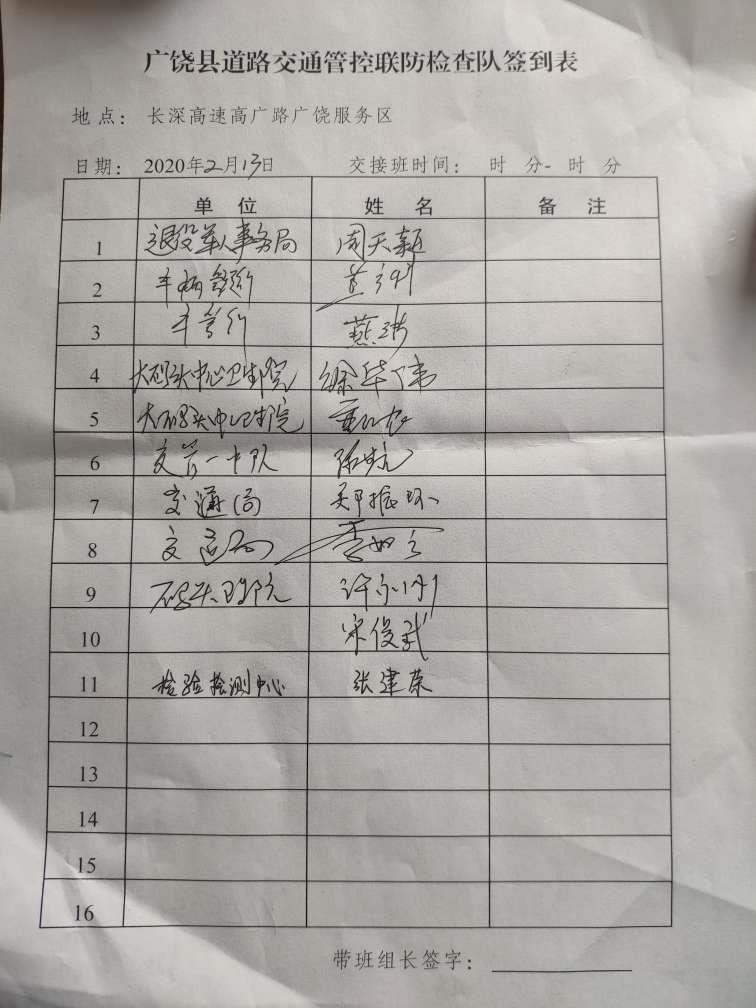 广饶县道路交通管控联防检查队签到表
地点： 长深高速高广路广饶服务区
日期： 2020年2月13日 交接班时间： 时 分- 时 分
单 位 姓 名 备 注
1 退役军人事务局 周天
2
3 车管所 燕
4 大码头中心卫生院 徐华伟
5 大码头中心卫生院
6 交管一中队
7 交通局 郑振环
8 交通局 李如
9 码头卫生院 许
10 宋俊武
11 检验检测中心 张建荣
12
13
14
15
16
带班组长签字：